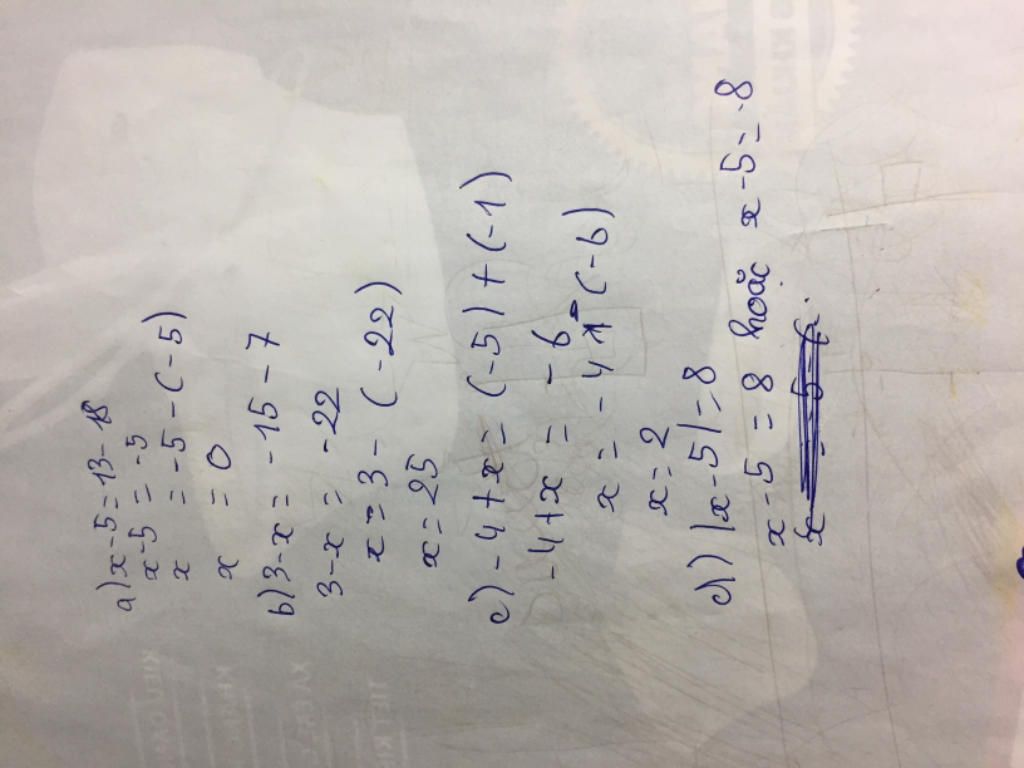 a) x - 5 = 13 - 18
x - 5 = -5
x = -5 - (-5)
x = 0
b) 3 - x = -15 - 7
3 - x = -22
x = 3 - (-22)
x = 25
c) -4 + x = (-5) + (-1)
-4 + x = -6
x = -4 - (-6)
x = 2
d) |x - 5| = 8
x - 5 = 8 hoặc x - 5 = -8